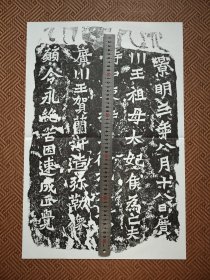 景明三年八月十八日廣
川王祖母太妃侯為亡夫
廣川王賀蘭汗造弥勒像
願令永絕苦因速成正覺